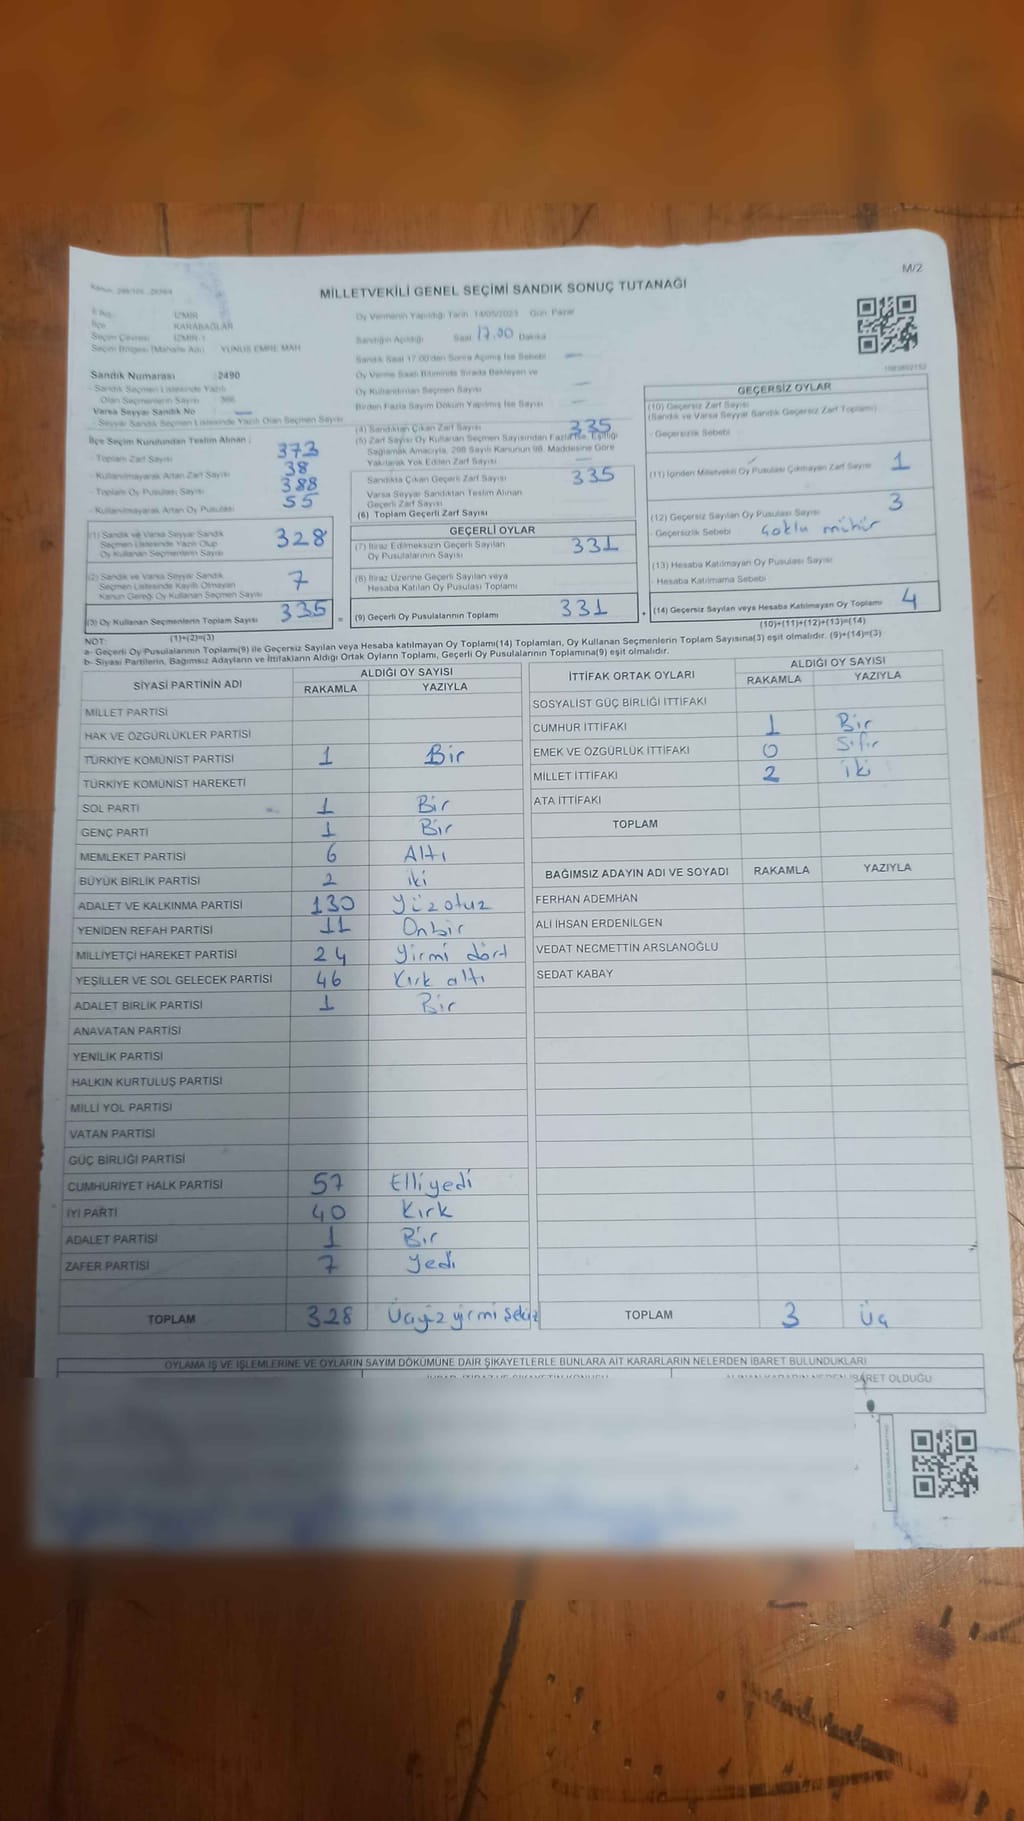 M/2
MİLLETVEKİLİ GENEL SEÇİMİ SANDIK SONUÇ TUTANAĞI
İli İZMİR
İlçe KARABAĞLAR
Seçim Çevresi İZMİR-1
Seçim Bölgesi (Mahalle Adı) YUNUS EMRE MAH
Sandık Numarası :2490
- Sandık Seçmen Listesinde Yazılı
Olan Seçmenlerin Sayısı
Varsa Seyyar Sandık No —
- Seyyar Sandık Seçmen Listesinde Yazılı Olan Seçmen Sayısı
İlçe Seçim Kurulundan Teslim Alınan :
- Toplam Zarf Sayısı 373
- Kullanılmayarak Artan Zarf Sayısı 38
- Toplam Oy Pusulası Sayısı 388
- Kullanılmayarak Artan Oy Pusulası 55
(1) Sandık ve Varsa Seyyar Sandık
Seçmen Listesinde Yazılı Olup
Oy Kullanan Seçmenlerin Sayısı 328
(2) Sandık ve Varsa Seyyar Sandık
Seçmen Listesinde Kayıtlı Olmayan
Kanun Gereği Oy Kullanan Seçmen Sayısı 7
(3) Oy Kullanan Seçmenlerin Toplam Sayısı 335
(1)+(2)=(3)
Oy Vermenin Yapıldığı Tarih 14/05/2023 Gün Pazar
Sandığın Açıldığı Saat 17.00 Dakika
Sandık Saat 17.00'den Sonra Açılmış İse Sebebi —
Oy Verme Saati Bitiminde Sırada Bekleyen ve
Oy Kullandırılan Seçmen Sayısı —
Birden Fazla Sayım Döküm Yapılmış İse Sayısı —
(4) Sandıktan Çıkan Zarf Sayısı 335
(5) Zarf Sayısı Oy Kullanan Seçmen Sayısından Fazla İse, Eşitliği
Sağlamak Amacıyla, 298 Sayılı Kanunun 98. Maddesine Göre
Yakılarak Yok Edilen Zarf Sayısı —
Sandıkta Çıkan Geçerli Zarf Sayısı 335
Varsa Seyyar Sandıktan Teslim Alınan
Geçerli Zarf Sayısı
(6) Toplam Geçerli Zarf Sayısı
GEÇERLİ OYLAR
(7) İtiraz Edilmeksizin Geçerli Sayılan
Oy Pusulalarının Sayısı 331
(8) İtiraz Üzerine Geçerli Sayılan veya
Hesaba Katılan Oy Pusulası Toplamı
= (9) Geçerli Oy Pusulalarının Toplamı 331
GEÇERSİZ OYLAR
(10) Geçersiz Zarf Sayısı
(Sandık ve Varsa Seyyar Sandık Geçersiz Zarf Toplamı)
- Geçersizlik Sebebi
(11) İçinden Milletvekili Oy Pusulası Çıkmayan Zarf Sayısı 1
(12) Geçersiz Sayılan Oy Pusulası Sayısı 3
- Geçersizlik Sebebi Çoklu mühür
(13) Hesaba Katılmayan Oy Pusulası Sayısı
Hesaba Katılmama Sebebi
+ (14) Geçersiz Sayılan veya Hesaba Katılmayan Oy Toplamı 4
(10)+(11)+(12)+(13)=(14)
NOT:
a- Geçerli Oy Pusulalarının Toplamı(9) ile Geçersiz Sayılan veya Hesaba katılmayan Oy Toplamı(14) Toplamları, Oy Kullanan Seçmenlerin Toplam Sayısına(3) eşit olmalıdır. (9)+(14)=(3)
b- Siyasi Partilerin, Bağımsız Adayların ve İttifakların Aldığı Ortak Oyların Toplamı, Geçerli Oy Pusulalarının Toplamına(9) eşit olmalıdır.
SİYASİ PARTİNİN ADI ALDIĞI OY SAYISI
RAKAMLA YAZIYLA
MİLLET PARTİSİ
HAK VE ÖZGÜRLÜKLER PARTİSİ
TÜRKİYE KOMÜNİST PARTİSİ 1 Bir
TÜRKİYE KOMÜNİST HAREKETİ
SOL PARTİ 1 Bir
GENÇ PARTİ 1 Bir
MEMLEKET PARTİSİ 6 Altı
BÜYÜK BİRLİK PARTİSİ 2 iki
ADALET VE KALKINMA PARTİSİ 130 Yüzotuz
YENİDEN REFAH PARTİSİ 11 Onbir
MİLLİYETÇİ HAREKET PARTİSİ 24 Yirmi dört
YEŞİLLER VE SOL GELECEK PARTİSİ 46 Kırk altı
ADALET BİRLİK PARTİSİ 1 Bir
ANAVATAN PARTİSİ
YENİLİK PARTİSİ
HALKIN KURTULUŞ PARTİSİ
MİLLİ YOL PARTİSİ
VATAN PARTİSİ
GÜÇ BİRLİĞİ PARTİSİ
CUMHURİYET HALK PARTİSİ 57 Elliyedi
İYİ PARTİ 40 Kırk
ADALET PARTİSİ 1 Bir
ZAFER PARTİSİ 7 Yedi
TOPLAM 328 Üçyüz yirmi sekiz
İTTİFAK ORTAK OYLARI ALDIĞI OY SAYISI
RAKAMLA YAZIYLA
SOSYALİST GÜÇ BİRLİĞİ İTTİFAKI
CUMHUR İTTİFAKI 1 Bir
EMEK VE ÖZGÜRLÜK İTTİFAKI 0 Sıfır
MİLLET İTTİFAKI 2 iki
ATA İTTİFAKI
TOPLAM
BAĞIMSIZ ADAYIN ADI VE SOYADI RAKAMLA YAZIYLA
FERHAN ADEMHAN
ALİ İHSAN ERDENİLGEN
VEDAT NECMETTİN ARSLANOĞLU
SEDAT KABAY
TOPLAM 3 Üç
OYLAMA İŞ VE İŞLEMLERİNE VE OYLARIN SAYIM DÖKÜMÜNE DAİR ŞİKAYETLERLE BUNLARA AİT KARARLARIN NELERDEN İBARET BULUNDUKLARI
İBARET OLDUĞU